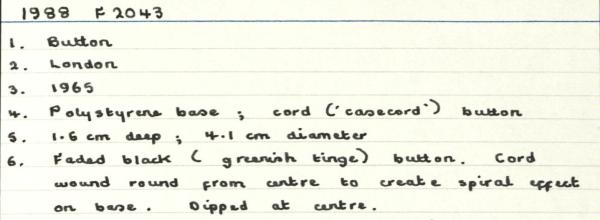 1988 F 2043
1. Button
2. London
3. 1965
4. Polystyrene base ; cord ('casecord') button
5. 1.6 cm deep ; 4.1 cm diameter
6. Faded black ( greenish tinge) button. Cord
wound round from centre to create spiral effect
on base. Dipped at centre.